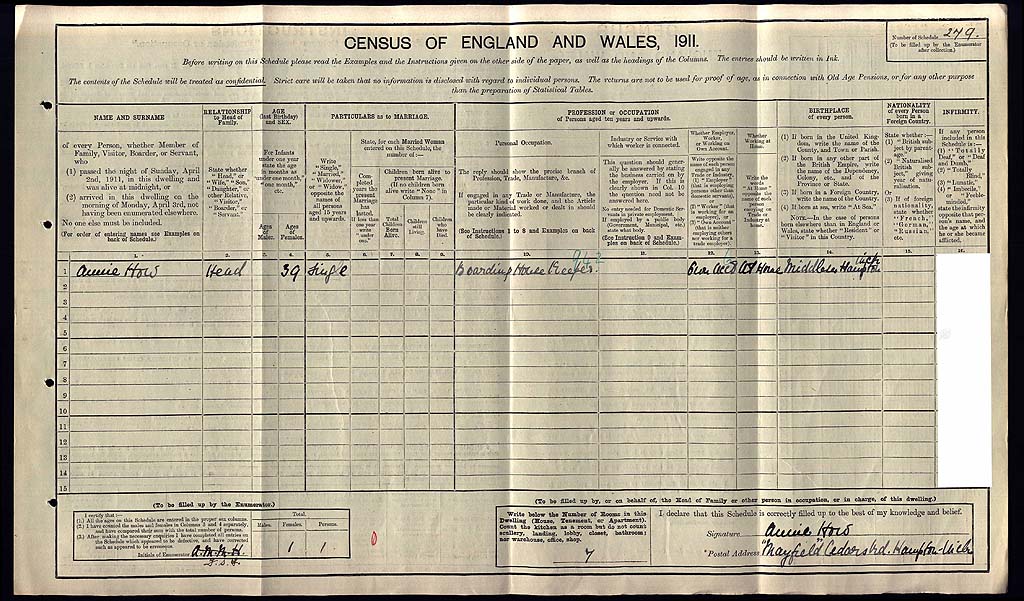 CENSUS OF ENGLAND AND WALES, 1911.
Number of Schedule 249.
(To be filled up by the Enumerator after collection.)
Before writing on this Schedule please read the Examples and the Instructions given on the other side of the paper, as well as the headings of the Columns. The entries should be written in Ink.
The contents of the Schedule will be treated as confidential. Strict care will be taken that no information is disclosed with regard to individual persons. The returns are not to be used for proof of age, as in connection with Old Age Pensions, or for any other purpose
than the preparation of Statistical Tables.
NAME AND SURNAME
of every Person, whether Member of
Family, Visitor, Boarder, or Servant,
who
(1) passed the night of Sunday, April
2nd, 1911, in this dwelling and
was alive at midnight, or
(2) arrived in this dwelling on the
morning of Monday, April 3rd, not
having been enumerated elsewhere.
No one else must be included.
(For order of entering names see Examples on
back of Schedule.)
RELATIONSHIP
to Head of
Family.
State whether
"Head," or
"Wife," "Son,"
"Daughter," or
other Relative,
"Visitor,"
"Boarder," or
"Servant."
AGE
(last Birthday)
and SEX.
For Infants
under one year
state the age
in months as
"under one month,"
"one month,"
etc.
Ages
of
Males.
Ages
of
Females.
PARTICULARS as to MARRIAGE.
Write
"Single,"
"Married,"
"Widower,"
or "Widow,"
opposite the
names of
all persons
aged 15 years
and upwards.
State, for each Married Woman
entered on this Schedule, the
number of:—
Completed
years the
present
Marriage
has
lasted.
If less than
one year
write
"under
one."
Children born alive to
present Marriage.
(If no children born
alive write "None" in
Column 7).
Total
Children
Born
Alive.
Children
still
Living.
Children
who
have
Died.
PROFESSION or OCCUPATION
of Persons aged ten years and upwards.
Personal Occupation.
The reply should show the precise branch of
Profession, Trade, Manufacture, &c.
If engaged in any Trade or Manufacture, the
particular kind of work done, and the Article
made or Material worked or dealt in should
be clearly indicated.
(See Instructions 1 to 8 and Examples on back
of Schedule.)
Industry or Service with
which worker is connected.
This question should generally
be answered by stating
the business carried on by
the employer. If this is
clearly shown in Col. 10
the question need not be
answered here.
No entry needed for Domestic Servants
in private employment.
If employed by a public body
(Government, Municipal, etc.)
state what body.
(See Instruction 9 and Examples
on back of Schedule.)
Whether Employer,
Worker,
or Working on
Own Account.
Write opposite the
name of each person
engaged in any
Trade or Industry,
(1) "Employer"
(that is employing
persons other than
domestic servants),
or
(2) "Worker" (that
is working for an
employer), or
(3) "Own Account"
(that is neither
employing others
nor working for a
trade employer).
Whether
Working at
Home.
Write the
words
"At Home"
opposite the
name of each
person
carrying on
Trade or
Industry at
home.
BIRTHPLACE
of every person.
(1) If born in the United Kingdom,
write the name of the
County, and Town or Parish.
(2) If born in any other part of
the British Empire, write
the name of the Dependency,
Colony, etc., and of the
Province or State.
(3) If born in a Foreign Country,
write the name of the Country.
(4) If born at sea, write "At Sea."
NOTE.—In the case of persons
born elsewhere than in England or
Wales, state whether "Resident" or
"Visitor" in this Country.
NATIONALITY
of every Person
born in a
Foreign Country.
State whether:—
(1) "British subject
by parentage,"
(2) "Naturalised
British subject,"
giving
year of naturalisation.
Or
(3) If of foreign
nationality,
state whether
"French,"
"German,"
"Russian,"
etc.
INFIRMITY.
If any person
included in this
Schedule is:—
(1) "Totally
Deaf," or "Deaf
and Dumb,"
(2) "Totally
Blind,"
(3) "Lunatic,"
(4) "Imbecile,"
or "Feeble-minded,"
state the infirmity
opposite that person's
name, and
the age at which
he or she became
afflicted.
1. 2. 3. 4. 5. 6. 7. 8. 9. 10. 11. 12. 13. 14. 15. 16.
1 Annie How Head 39 Single Boarding House Keeper 942 Own Acct At Home Middlesex Hampton Wick
2
3
4
5
6
7
8
9
10
11
12
13
14
15
(To be filled up by the Enumerator.)
I certify that:—
(1.) All the ages on this Schedule are entered in the proper sex columns.
(2.) I have counted the males and females in Columns 3 and 4 separately,
and have compared their sum with the total number of persons.
(3.) After making the necessary enquiries I have completed all entries on
the Schedule which appeared to be defective, and have corrected
such as appeared to be erroneous.
Initials of Enumerator
Total.
Males. Females. Persons.
1 1
0
(To be filled up by, or on behalf of, the Head of Family or other person in occupation, or in charge, of this dwelling.)
Write below the Number of Rooms in this
Dwelling (House, Tenement, or Apartment).
Count the kitchen as a room but do not count
scullery, landing, lobby, closet, bathroom;
nor warehouse, office, shop.
7
I declare that this Schedule is correctly filled up to the best of my knowledge and belief.
Signature Annie How
Postal Address "Mayfield" Cedars Rd. Hampton-Wick